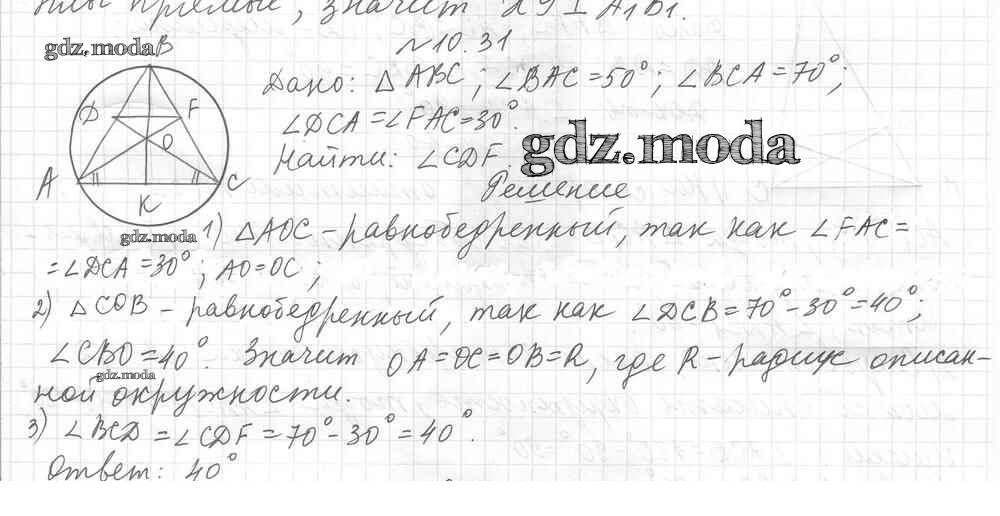 пы прямые, значит XY ⊥ A₁B₁.
gdz.moda
№10.31
B
Дано: △ABC; ∠BAC=50°; ∠BCA=70°;
D F
∠DCA=∠FAC=30°.
O
Найти: ∠CDF.
gdz.moda
A C
Решение
K
gdz.moda
1) △AOC – равнобедренный, так как ∠FAC=
=∠DCA=30°; AO=OC;
2) △COB – равнобедренный, так как ∠DCB=70°-30°=40°;
∠CBO=40°. Значит OA=OC=OB=R, где R – радиус описан-
gdz.moda
ной окружности.
3) ∠BCD=∠CDF=70°-30°=40°.
Ответ: 40°